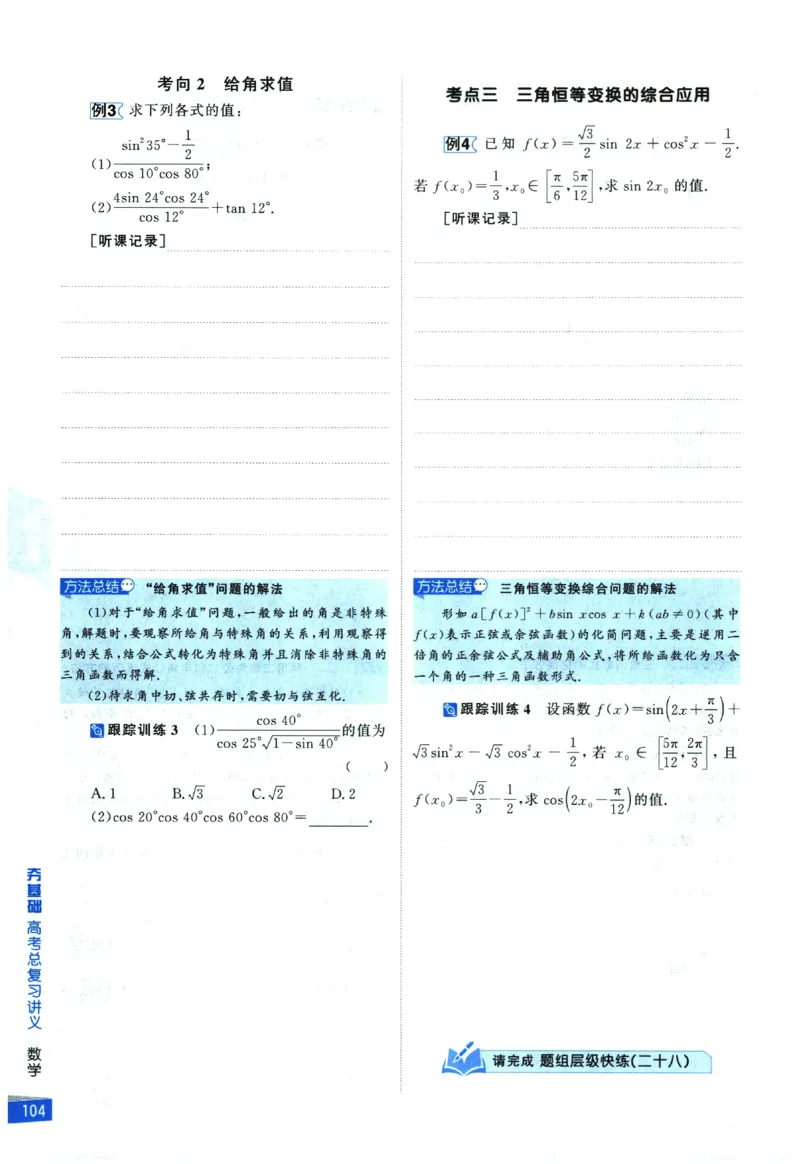 考向 2 给角求值
例3 求下列各式的值:
(1) \frac{sin²35°-\frac{1}{2}}{cos 10°cos 80°};
(2) \frac{4sin 24°cos 24°}{cos 12°}+tan 12°.
[听课记录]
方法总结 “给角求值”问题的解法
(1)对于“给角求值”问题,一般给出的角是非特殊
角,解题时,要观察所给角与特殊角的关系,利用观察得
到的关系,结合公式转化为特殊角并且消除非特殊角的
三角函数而得解.
(2)待求角中切、弦共存时,需要切与弦互化.
跟踪训练 3 (1) \frac{cos 40°}{cos 25°\sqrt{1-sin 40°}}的值为
( )
A.1 B.√3 C.√2 D.2
(2)cos 20°cos 40°cos 60°cos 80°=________.
考点三 三角恒等变换的综合应用
例4 已知 f(x)=\frac{√3}{2}sin 2x+cos²x-\frac{1}{2}.
若 f(x₀)=\frac{1}{3},x₀∈[\frac{π}{6},\frac{5π}{12}],求 sin 2x₀ 的值.
[听课记录]
方法总结 三角恒等变换综合问题的解法
形如 a[f(x)]²+bsin xcos x+k(ab≠0)(其中
f(x)表示正弦或余弦函数)的化简问题,主要是逆用二
倍角的正余弦公式及辅助角公式,将所给函数化为只含
一个角的一种三角函数形式.
跟踪训练 4 设函数 f(x)=sin(2x+\frac{π}{3})+
√3sin²x-√3cos²x-\frac{1}{2},若 x₀∈[\frac{5π}{12},\frac{2π}{3}],且
f(x₀)=\frac{√3}{3}-\frac{1}{2},求 cos(2x₀-\frac{π}{12})的值.
请完成 题组层级快练(二十八)
夯基础 高考总复习讲义 数学
104